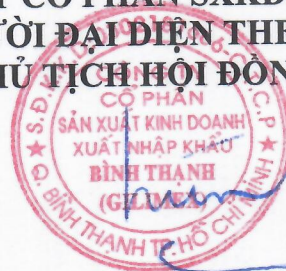 CỔ PHẦN
ƯỜI ĐẠI DIỆN THE
HỦ TỊCH HỘI ĐỒN
CÔNG
CỔ PHẦN
SẢN XUẤT KINH DOANH
XUẤT NHẬP KHẨU
BÌNH THẠNH
(GILIMEX)
Q. BÌNH THẠNH TP. HỒ CHÍ MINH